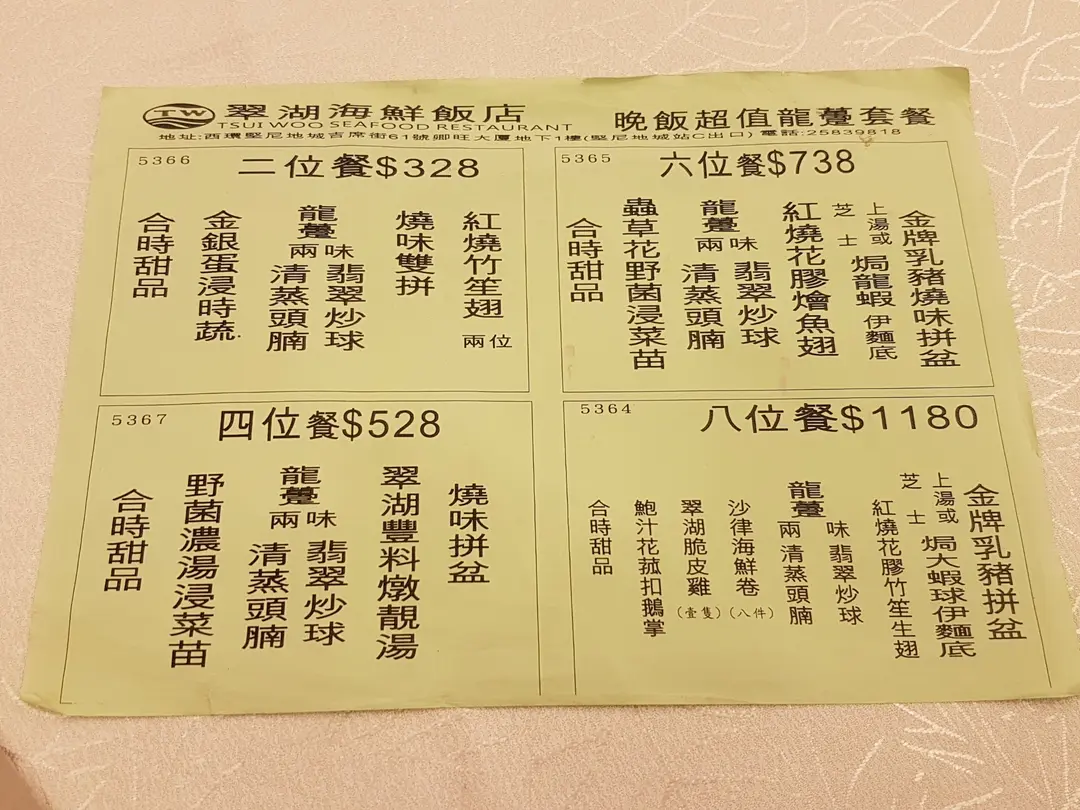 TW
翠湖海鮮飯店
TSUI WOO SEAFOOD RESTAURANT
晚飯超值龍躉套餐
地址:西環堅尼地城吉席街61號卿旺大廈地下1樓(堅尼地城站C出口) 電話:25839818
5366
二位餐$328
紅燒竹笙翅 兩位
燒味雙拼
龍躉兩味
翡翠炒球
清蒸頭腩
金銀蛋浸時蔬
合時甜品
5365
六位餐$738
金牌乳豬燒味拼盆
上湯或芝士焗龍蝦伊麵底
紅燒花膠燴魚翅
龍躉兩味
翡翠炒球
清蒸頭腩
蟲草花野菌浸菜苗
合時甜品
5367
四位餐$528
燒味拼盆
翠湖豐料燉靚湯
龍躉兩味
翡翠炒球
清蒸頭腩
野菌濃湯浸菜苗
合時甜品
5364
八位餐$1180
金牌乳豬拼盆
上湯或芝士焗大蝦球伊麵底
紅燒花膠竹笙生翅
龍躉兩味
翡翠炒球
清蒸頭腩
沙律海鮮卷(八件)
翠湖脆皮雞(壹隻)
鮑汁花菰扣鵝掌
合時甜品